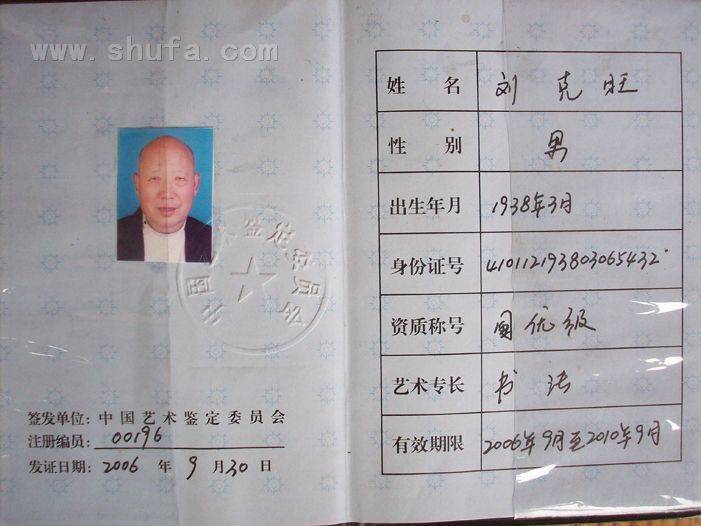 www.shufa.com
中国艺术鉴定委员会
签发单位：中国艺术鉴定委员会
注册编员：00196
发证日期：2006 年 9 月 30 日
姓 名 刘克旺
性 别 男
出生年月 1938年3月
身份证号 410112193803065432
资质称号 国优级
艺术专长 书法
有效期限 2006年9月至2010年9月